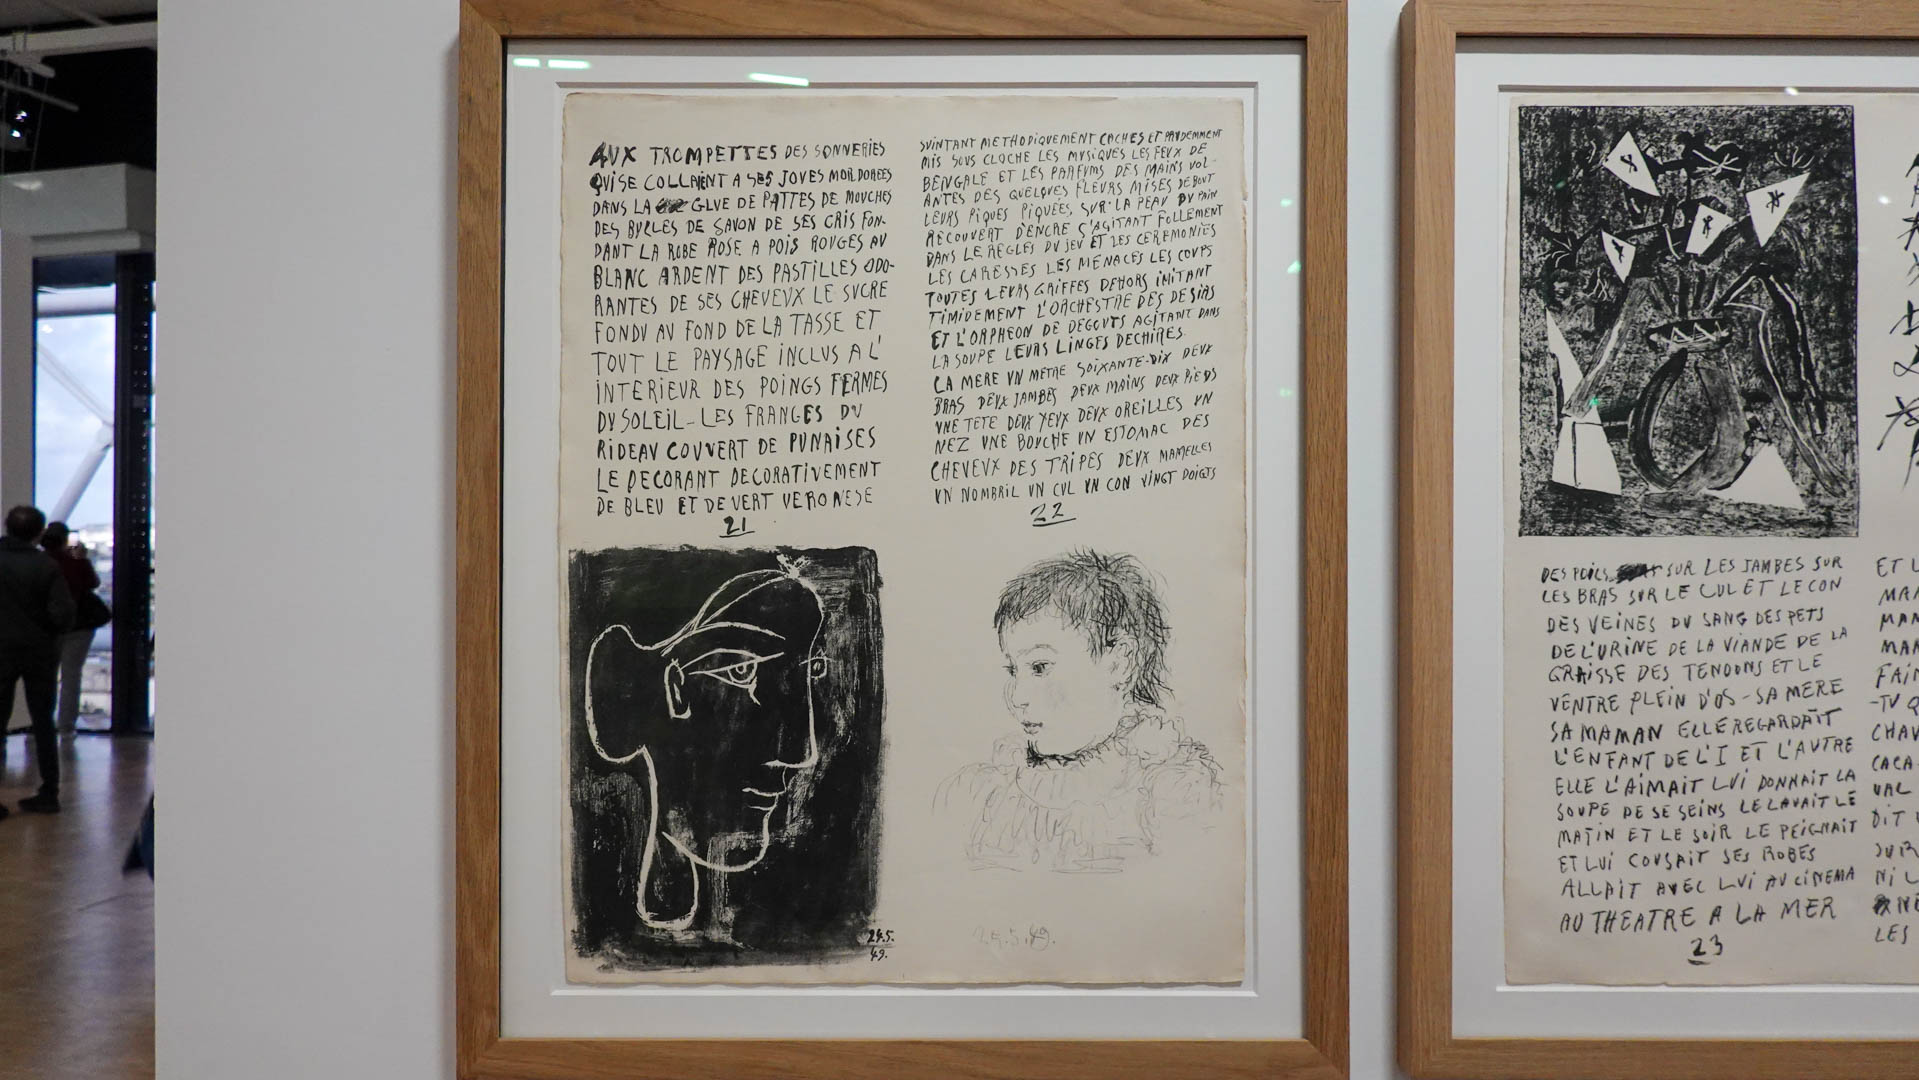 AUX TROMPETTES DES SONNERIES
QUI SE COLLAIENT A SES JOUES MORDOREES
DANS LA GLUE DE PATTES DE MOUCHES
DES BULLES DE SAVON DE SES CRIS FON-
DANT LA ROBE ROSE A POIS ROUGES AU
BLANC ARDENT DES PASTILLES ODO-
RANTES DE SES CHEVEUX LE SUCRE
FONDU AU FOND DE LA TASSE ET
TOUT LE PAYSAGE INCLUS A L'
INTERIEUR DES POINGS FERMES
DU SOLEIL - LES FRANGES DU
RIDEAU COUVERT DE PUNAISES
LE DECORANT DECORATIVEMENT
DE BLEU ET DE VERT VERONESE
21
SUINTANT METHODIQUEMENT CACHES ET PRUDEMMENT
MIS SOUS CLOCHE LES MUSIQUES LES FEUX DE
BENGALE ET LES PARFUMS DES MAINS VOL-
ANTES DES QUELQUES FLEURS MISES DEBOUT
LEURS PIQUES PIQUÉES, SUR LA PEAU DU PAIN
RECOUVERT D'ENCRE S'AGITANT FOLLEMENT
DANS LE REGLES DU JEU ET LES CEREMONIES
LES CARESSES LES MENACES LES COUPS
TOUTES LEURS GRIFFES DEHORS IMITANT
TIMIDEMENT L'ORCHESTRE DES DESIRS
ET L'ORPHEON DE DEGOUTS AGITANT DANS
LA SOUPE LEURS LINGES DECHIRES.
LA MERE UN METRE SOIXANTE-DIX DEUX
BRAS DEUX JAMBES DEUX MAINS DEUX PIEDS
UNE TETE DEUX YEUX DEUX OREILLES UN
NEZ UNE BOUCHE UN ESTOMAC DES
CHEVEUX DES TRIPES DEUX MAMELLES
UN NOMBRIL UN CUL UN CON VINGT DOIGTS
22
24.5.
49.
24.5.49.
DES POILS SUR LES JAMBES SUR
LES BRAS SUR LE CUL ET LE CON
DES VEINES DU SANG DES PETS
DE L'URINE DE LA VIANDE DE LA
GRAISSE DES TENDONS ET LE
VENTRE PLEIN D'OS - SA MERE
SA MAMAN ELLE REGARDAIT
L'ENFANT DE L'I ET L'AUTRE
ELLE L'AIMAIT LUI DONNAIT LA
SOUPE DE SE SEINS LE LAVAIT LE
MATIN ET LE SOIR LE PEIGNAIT
ET LUI COUSAIT SES ROBES
ALLAIT AVEC LUI AU CINEMA
AU THEATRE A LA MER
23
ET L
MAN
MAN
FAIN
-TU Q
CHAU
CACA-
VAL
DIT
SUR
NI L
LES